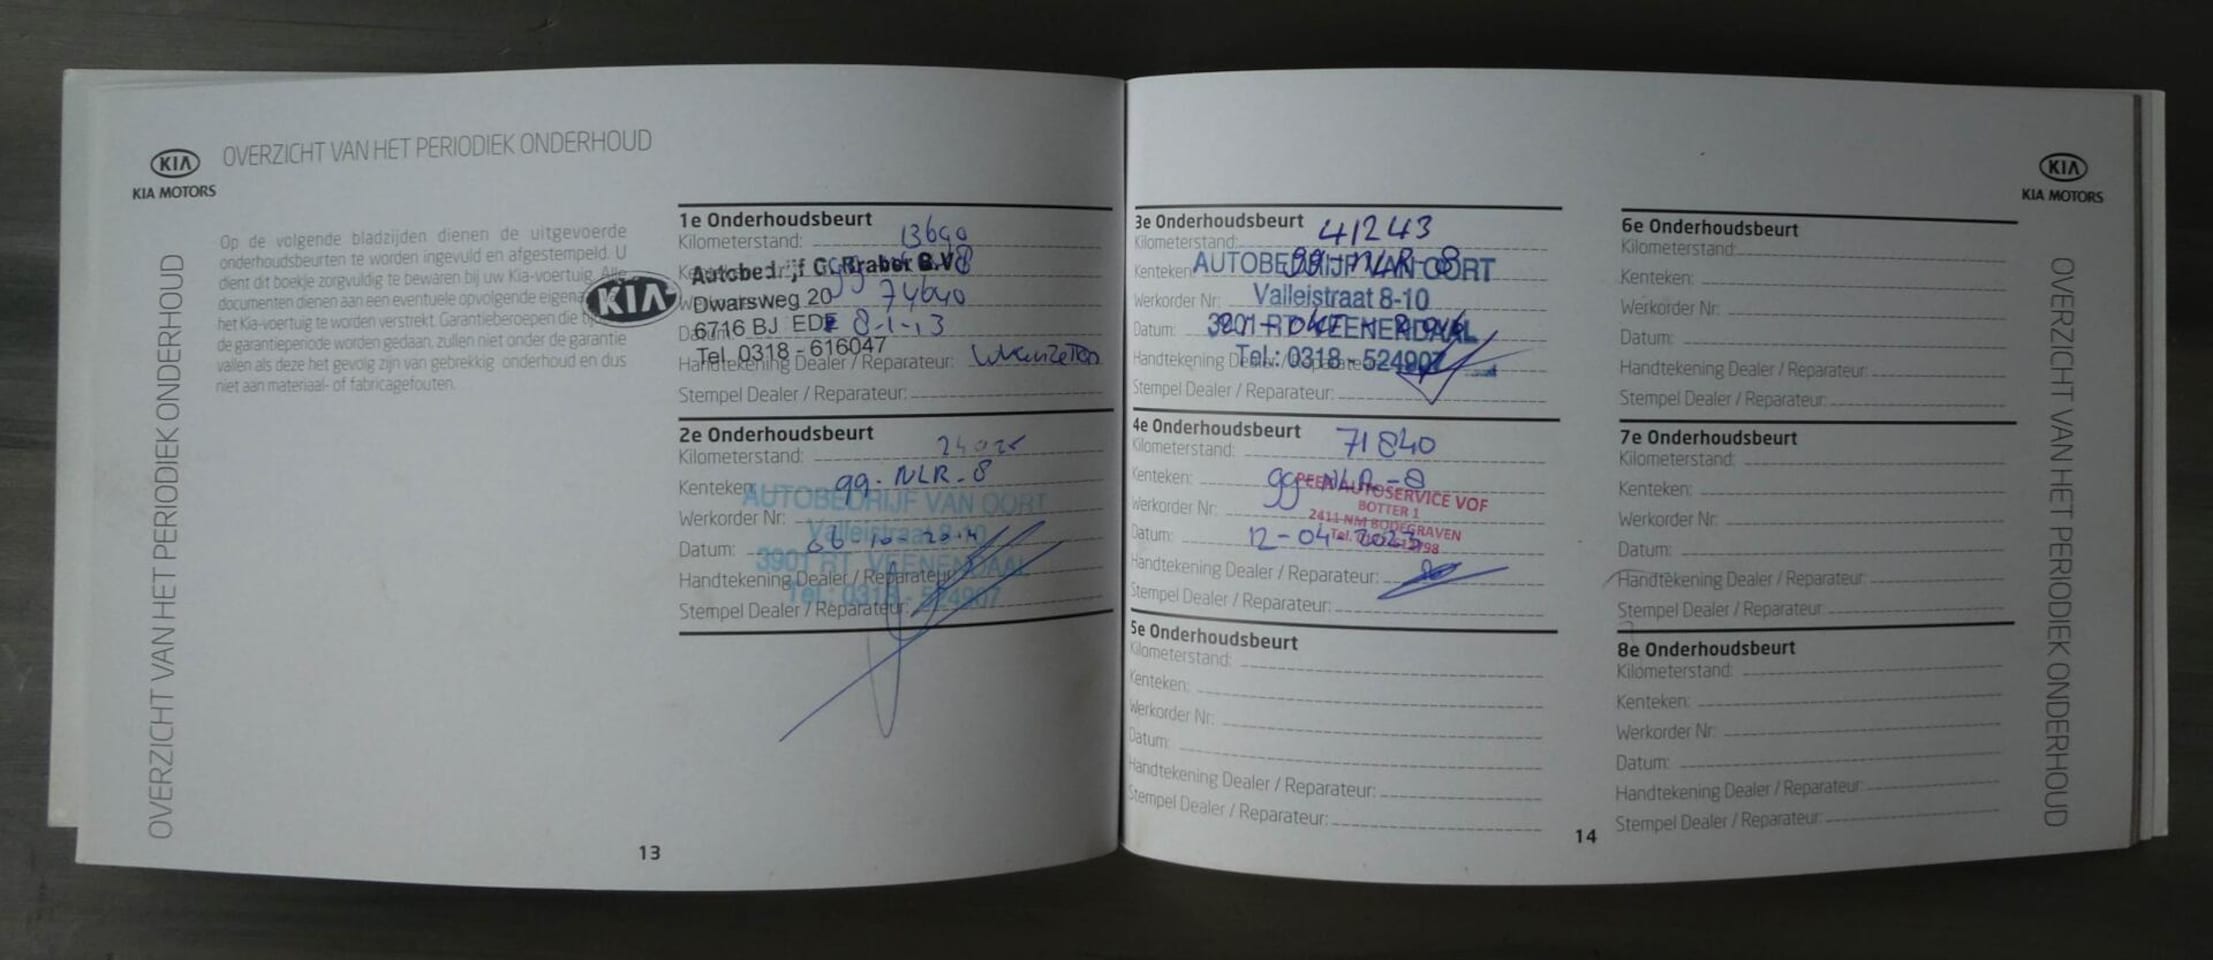 KIA
KIA MOTORS
OVERZICHT VAN HET PERIODIEK ONDERHOUD
OVERZICHT VAN HET PERIODIEK ONDERHOUD
Op de volgende bladzijden dienen de uitgevoerde
onderhoudsbeurten te worden ingevuld en afgestempeld. U
dient dit boekje zorgvuldig te bewaren bij uw Kia-voertuig. Alle
documenten dienen aan een eventuele opvolgende eigenaar
het Kia-voertuig te worden verstrekt. Garantieberoepen die
de garantieperiode worden gedaan, zullen niet onder de garantie
vallen als deze het gevolg zijn van gebrekkig onderhoud en dus
niet aan materiaal- of fabricagefouten.
1e Onderhoudsbeurt
Kilometerstand: 13690
KIA
Autobedrijf G. Braber B.V.
Dwarsweg 20 74640
6716 BJ EDE 8-1-13
Tel. 0318 - 616047
Handtekening Dealer / Reparateur:
Stempel Dealer / Reparateur:
2e Onderhoudsbeurt
Kilometerstand:
Kenteken: 99-NLR-8
AUTOBEDRIJF VAN OORT
Werkorder Nr:
Valleistraat 8-10
Datum: 06-10-2014
3901 RT VEENENDAAL
Handtekening Dealer / Reparateur:
Tel.: 0318 - 524907
Stempel Dealer / Reparateur:
13
3e Onderhoudsbeurt
Kilometerstand: 41243
Kenteken: 99-NLR-8
AUTOBEDRIJF VAN OORT
Werkorder Nr:
Valleistraat 8-10
Datum:
3901 RT VEENENDAAL
Handtekening Dealer / Reparateur:
Tel.: 0318 - 524907
Stempel Dealer / Reparateur:
4e Onderhoudsbeurt
Kilometerstand: 71840
Kenteken: 99-NLR-8
PEEN AUTOSERVICE VOF
BOTTER 1
Werkorder Nr:
2411 NM BODEGRAVEN
Datum: 12-04-2023
Tel.
Handtekening Dealer / Reparateur:
Stempel Dealer / Reparateur:
5e Onderhoudsbeurt
Kilometerstand:
Kenteken:
Werkorder Nr:
Datum:
Handtekening Dealer / Reparateur:
Stempel Dealer / Reparateur:
14
6e Onderhoudsbeurt
Kilometerstand:
Kenteken:
Werkorder Nr:
Datum:
Handtekening Dealer / Reparateur:
Stempel Dealer / Reparateur:
7e Onderhoudsbeurt
Kilometerstand:
Kenteken:
Werkorder Nr:
Datum:
Handtekening Dealer / Reparateur:
Stempel Dealer / Reparateur:
8e Onderhoudsbeurt
Kilometerstand:
Kenteken:
Werkorder Nr:
Datum:
Handtekening Dealer / Reparateur:
Stempel Dealer / Reparateur:
KIA
KIA MOTORS
OVERZICHT VAN HET PERIODIEK ONDERHOUD